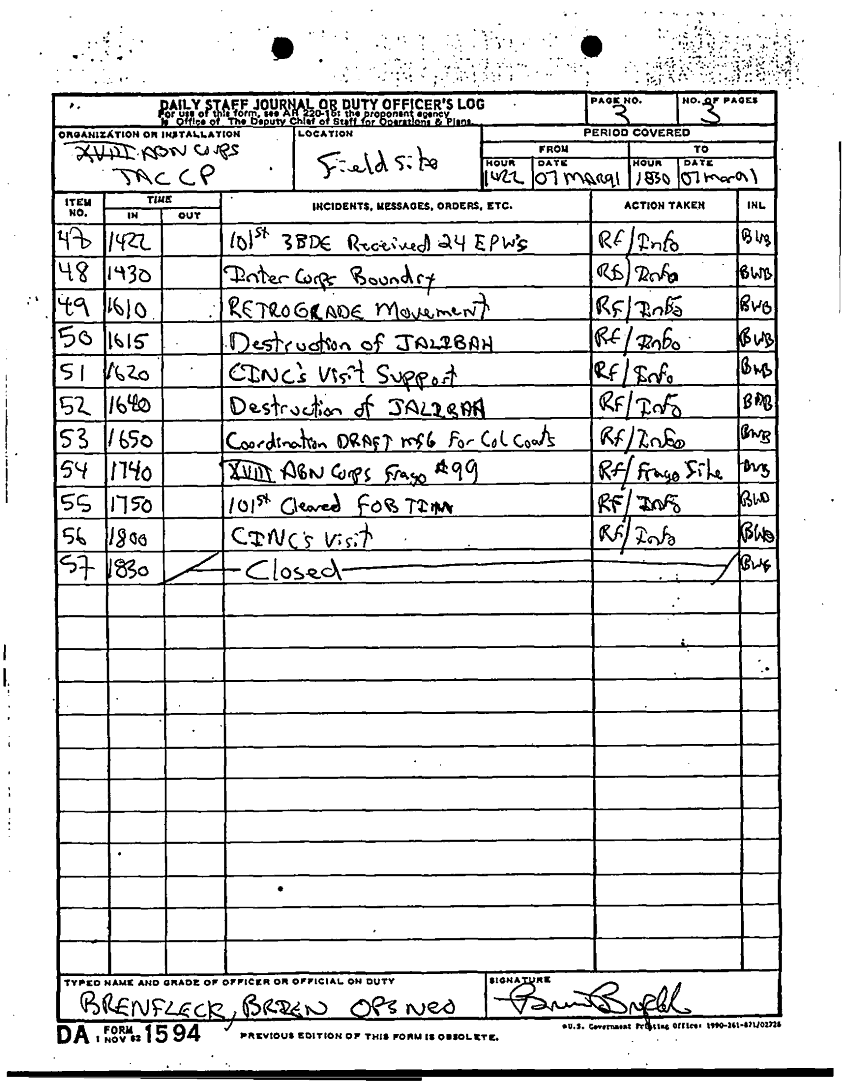 DAILY STAFF JOURNAL OR DUTY OFFICER'S LOG
For use of this form, see AR 220-15; the proponent agency
is Office of The Deputy Chief of Staff for Operations & Plans.
PAGE NO.
3
NO. OF PAGES
3
ORGANIZATION OR INSTALLATION
XVIII ABN Corps
TAC CP
LOCATION
Field Site
PERIOD COVERED
FROM TO
HOUR DATE HOUR DATE
1422 07 MAR91 1830 07 mar91
ITEM NO. TIME INCIDENTS, MESSAGES, ORDERS, ETC. ACTION TAKEN INL
IN OUT
47 1422 101st 3BDE Received 24 EPW's RF/Info BWB
48 1430 Inter Corps Boundry RF/Info BWB
49 1610 RETROGRADE Movement RF/Info BWB
50 1615 Destruction of JALIBAH RF/Info BWB
51 1620 CINC's Visit Support RF/Info BWB
52 1640 Destruction of JALIBAH RF/Info BWB
53 1650 Coordination DRAFT msg For Col Coats RF/Info BWB
54 1740 XVIII ABN Corps Frago #99 RF/Frago File BWB
55 1750 101st Cleared FOB TIM RF/Info BWB
56 1800 CINC's Visit RF/Info BWB
57 1830 Closed BWB
TYPED NAME AND GRADE OF OFFICER OR OFFICIAL ON DUTY
BRENFLECK, BRIEN OPS NCO
SIGNATURE
DA FORM 1 NOV 62 1594
PREVIOUS EDITION OF THIS FORM IS OBSOLETE.
*U.S. Government Printing Office: 1990-261-871/02726